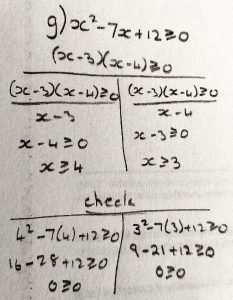 g) x² - 7x + 12 ≥ 0
(x - 3)(x - 4) ≥ 0
(x - 3)(x - 4) ≥ 0
x - 3
x - 4 ≥ 0
x ≥ 4
(x - 3)(x - 4) ≥ 0
x - 4
x - 3 ≥ 0
x ≥ 3
check
4² - 7(4) + 12 ≥ 0
16 - 28 + 12 ≥ 0
0 ≥ 0
3² - 7(3) + 12 ≥ 0
9 - 21 + 12 ≥ 0
0 ≥ 0